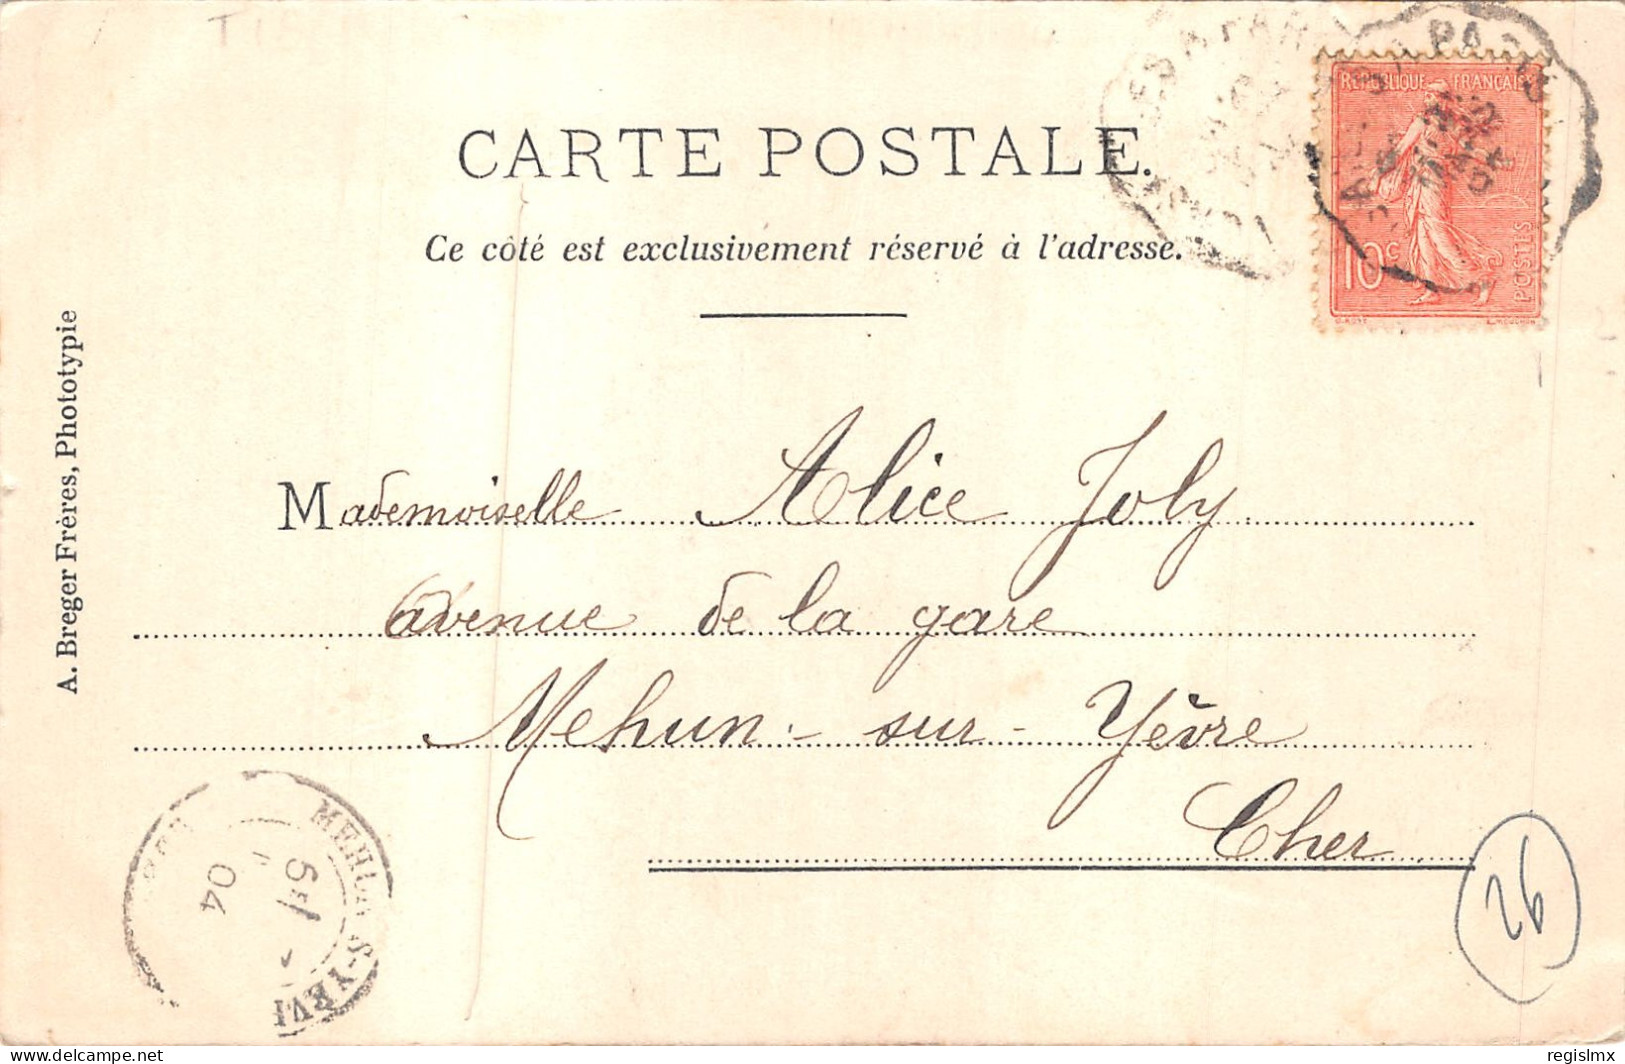 CARTE POSTALE.
Ce côté est exclusivement réservé à l'adresse.
REPUBLIQUE FRANÇAISE
10 c
POSTES
A. Breger Frères, Phototypie
Mademoiselle Alice Joly
avenue de la gare
Mehun-sur-Yèvre
Cher
MEHUN-S-YÈV
04
26
delcampe.net
regislmx